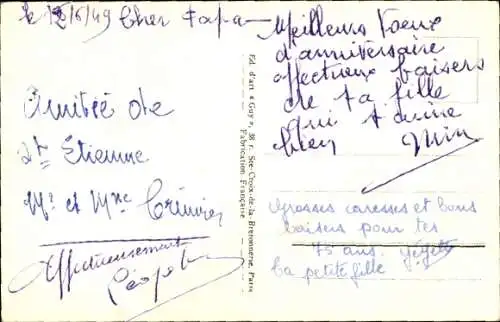 le 12/6/49 Cher Papa
Meilleurs Voeux
d'anniversaire
affectueux baisers
de ta fille
qui t'aime
bien Mim
Amitié de
St Étienne
Mr et Mme
Affectueusement
Ed. d'art « Guy », 38 r. Ste-Croix-de-la Bretonnerie, Paris
Fabrication Française
Grosses caresses et bons
baisers pour tes
75 ans.
La petite fille